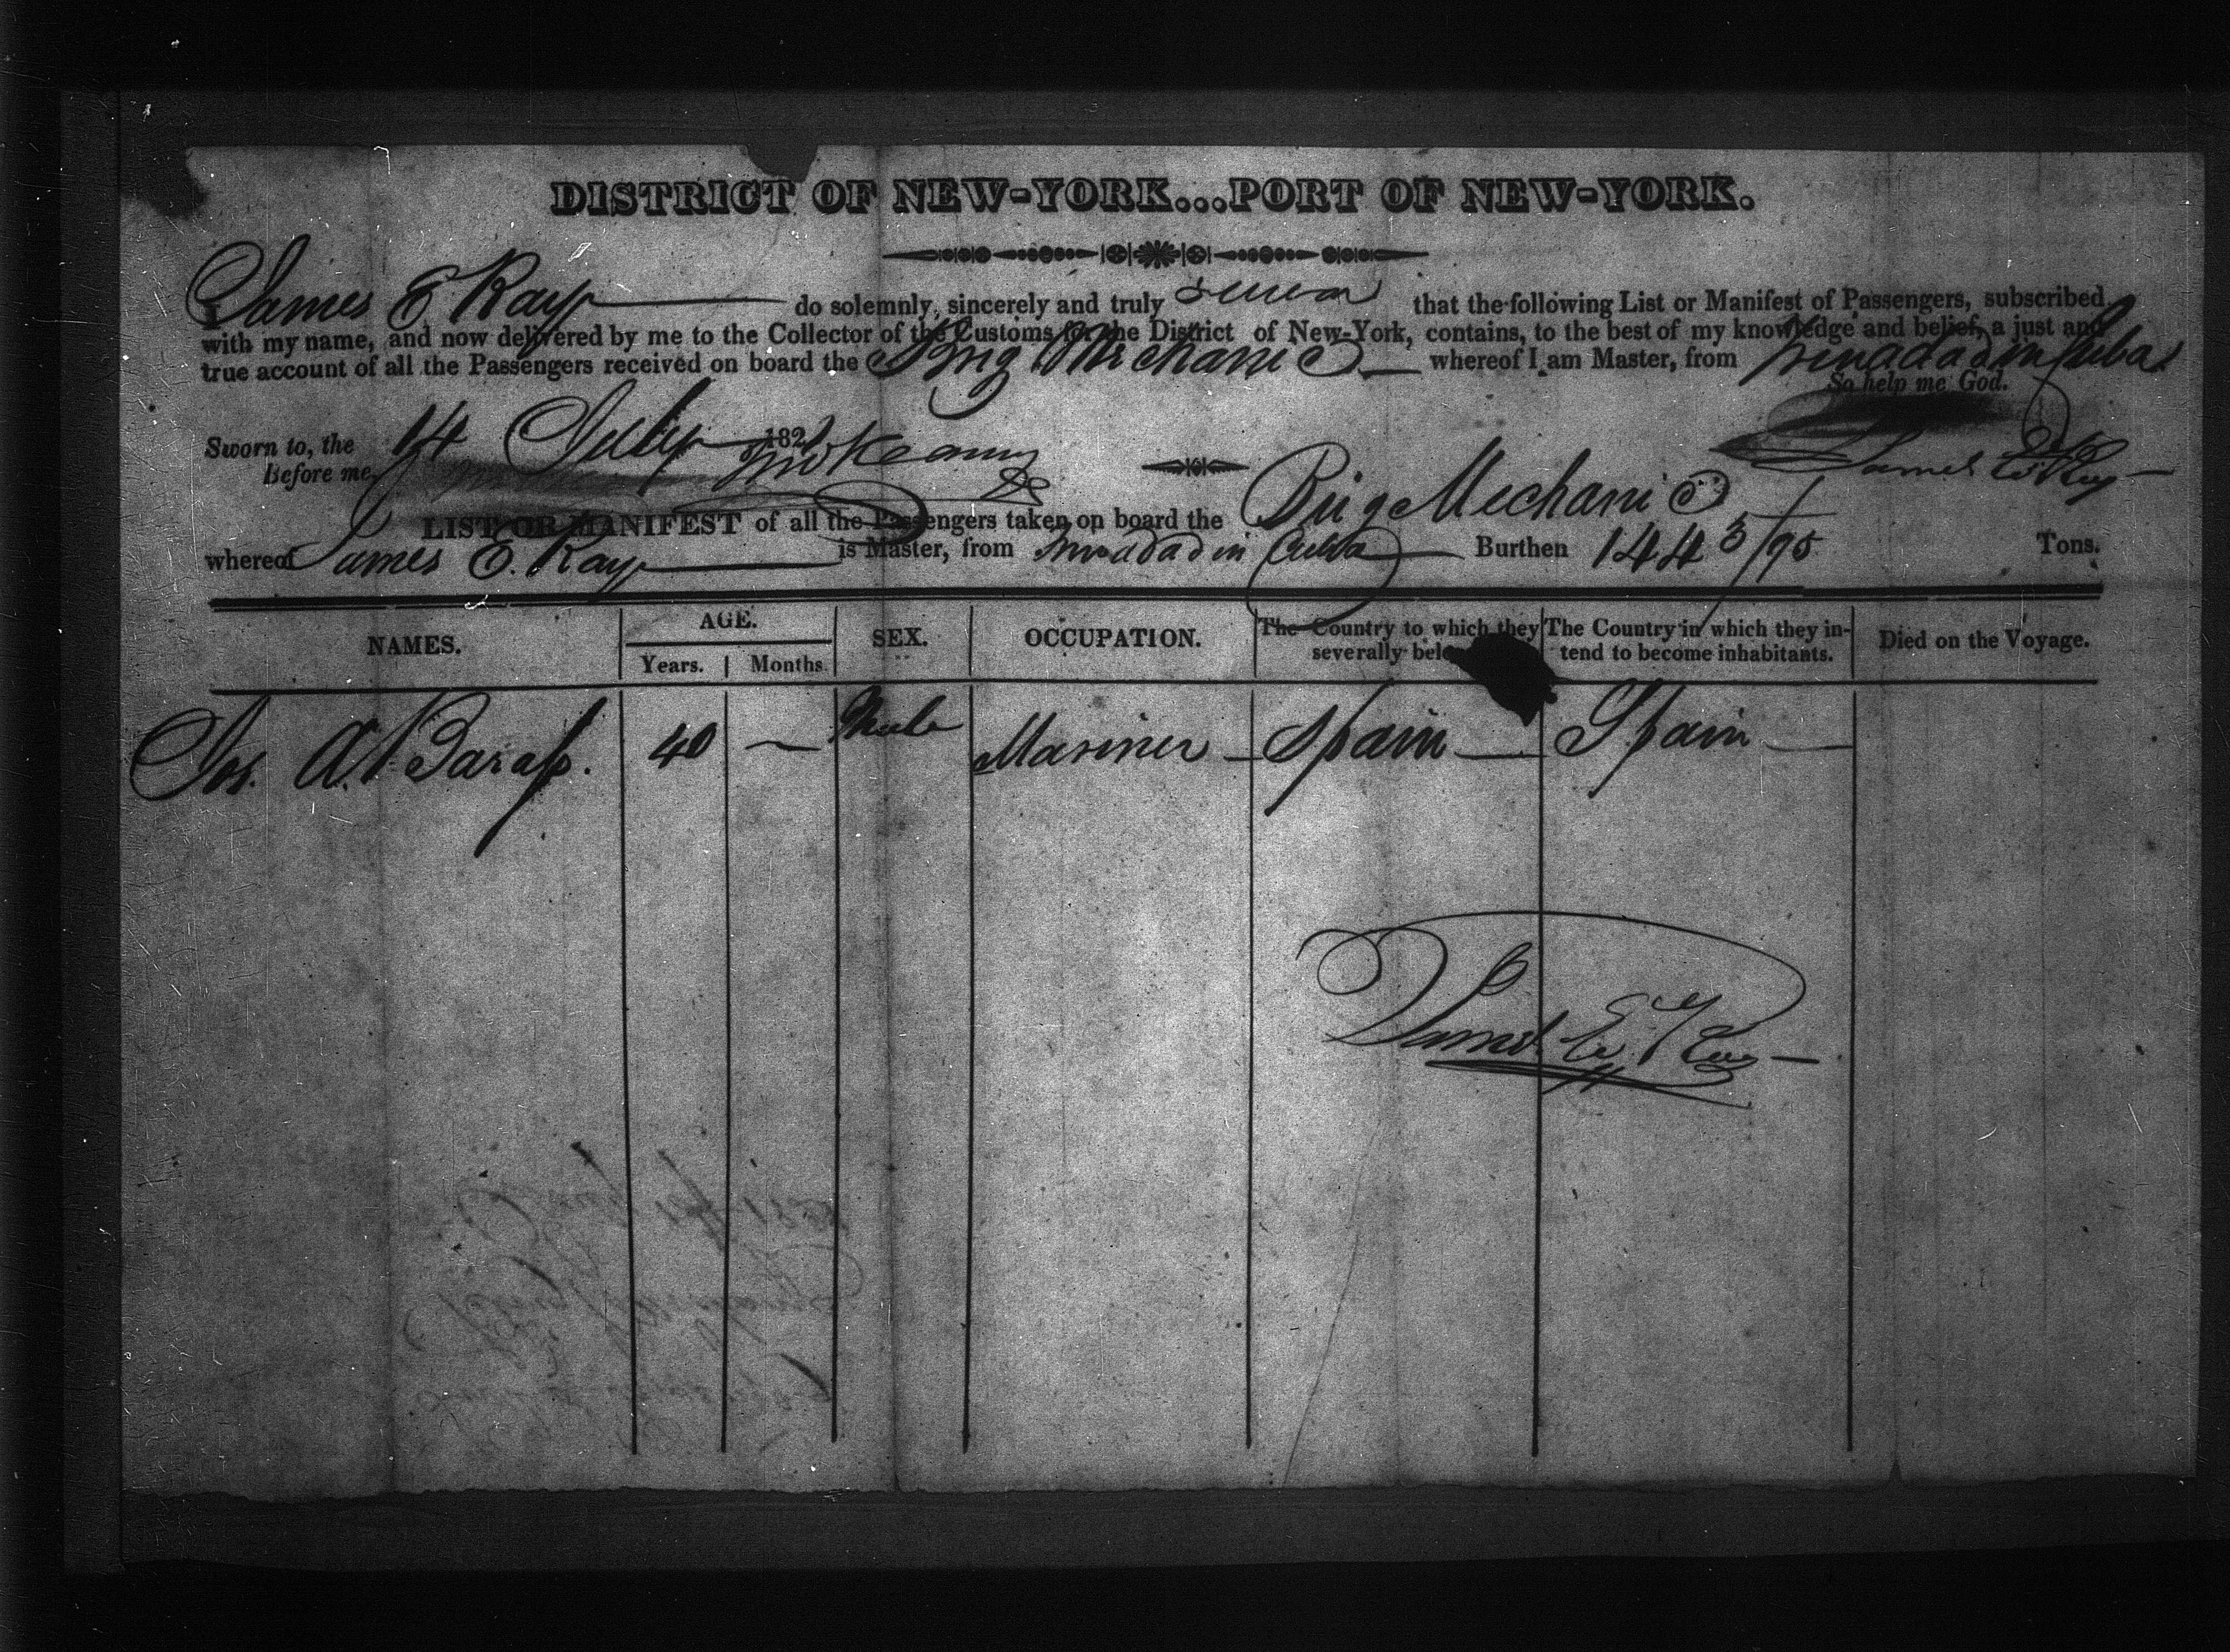 DISTRICT OF NEW-YORK...PORT OF NEW-YORK.
James E Ray do solemnly, sincerely and truly swear that the following List or Manifest of Passengers, subscribed
with my name, and now delivered by me to the Collector of the Customs for the District of New-York, contains, to the best of my knowledge and belief, a just and
true account of all the Passengers received on board the Brig Mechanic whereof I am Master, from in Cuba
So help me God.
Sworn to, the 14 July 182
Before me,
James E. Ray
LIST OR MANIFEST of all the Passengers taken on board the Brig Mechanic
whereof James E. Ray is Master, from in Cuba Burthen 144 3/95 Tons.
NAMES. AGE. SEX. OCCUPATION. The Country to which they The Country in which they in- Died on the Voyage.
Years. Months severally tend to become inhabitants.
Jos. A. 40 Male Mariner Spain Spain
James E. Ray